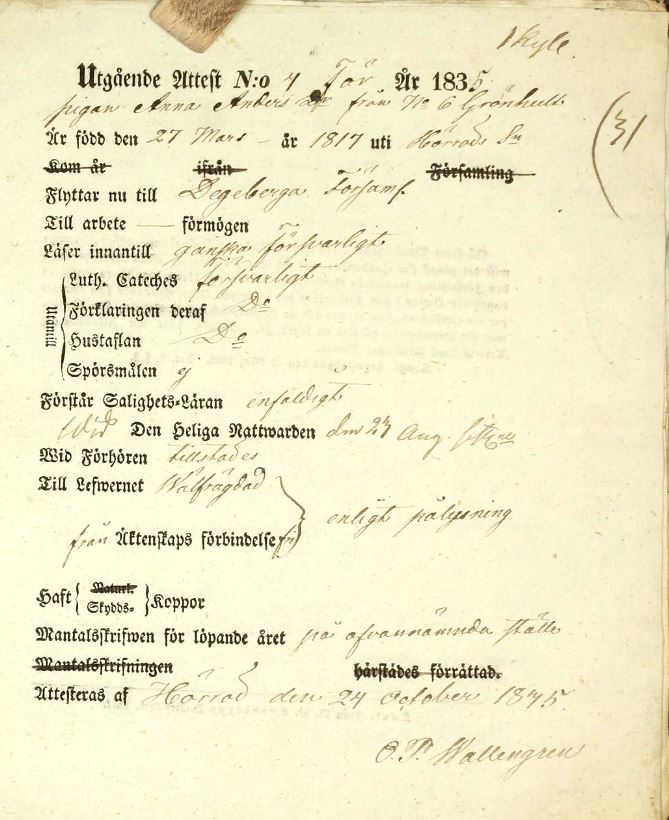 Utgående Attest N:o 4 För År 1835.
pigan Anna Anders Dr från No 6 Grönhult
(3)
Är född den 27 Mars – år 1817 uti Hörröds Sn
Kom år ifrån Församling
Flyttar nu till Degeberga Församl.
Till arbete — förmögen
Läser innantill ganska försvarligt
Utantill
Luth. Cateches försvarligt
Förklaringen deraf Do
Hustaflan Do
Spörsmålen ej
Förstår Salighets-Läran enfaldigt
Wid Den Heliga Nattwarden den 23 Aug.
Wid Förhören tillstädes
Till Lefwernet Wälfrägdad
enligt pålysning
från Äktenskaps förbindelse fri
Haft Naturl. Skydds- Koppor
Mantalsskrifwen för löpande året på ofvannämnda ställe
Mantalsskrifningen härstädes förrättad.
Attesteras af Hörröd den 24 October 1835.
O. P. Wallengren